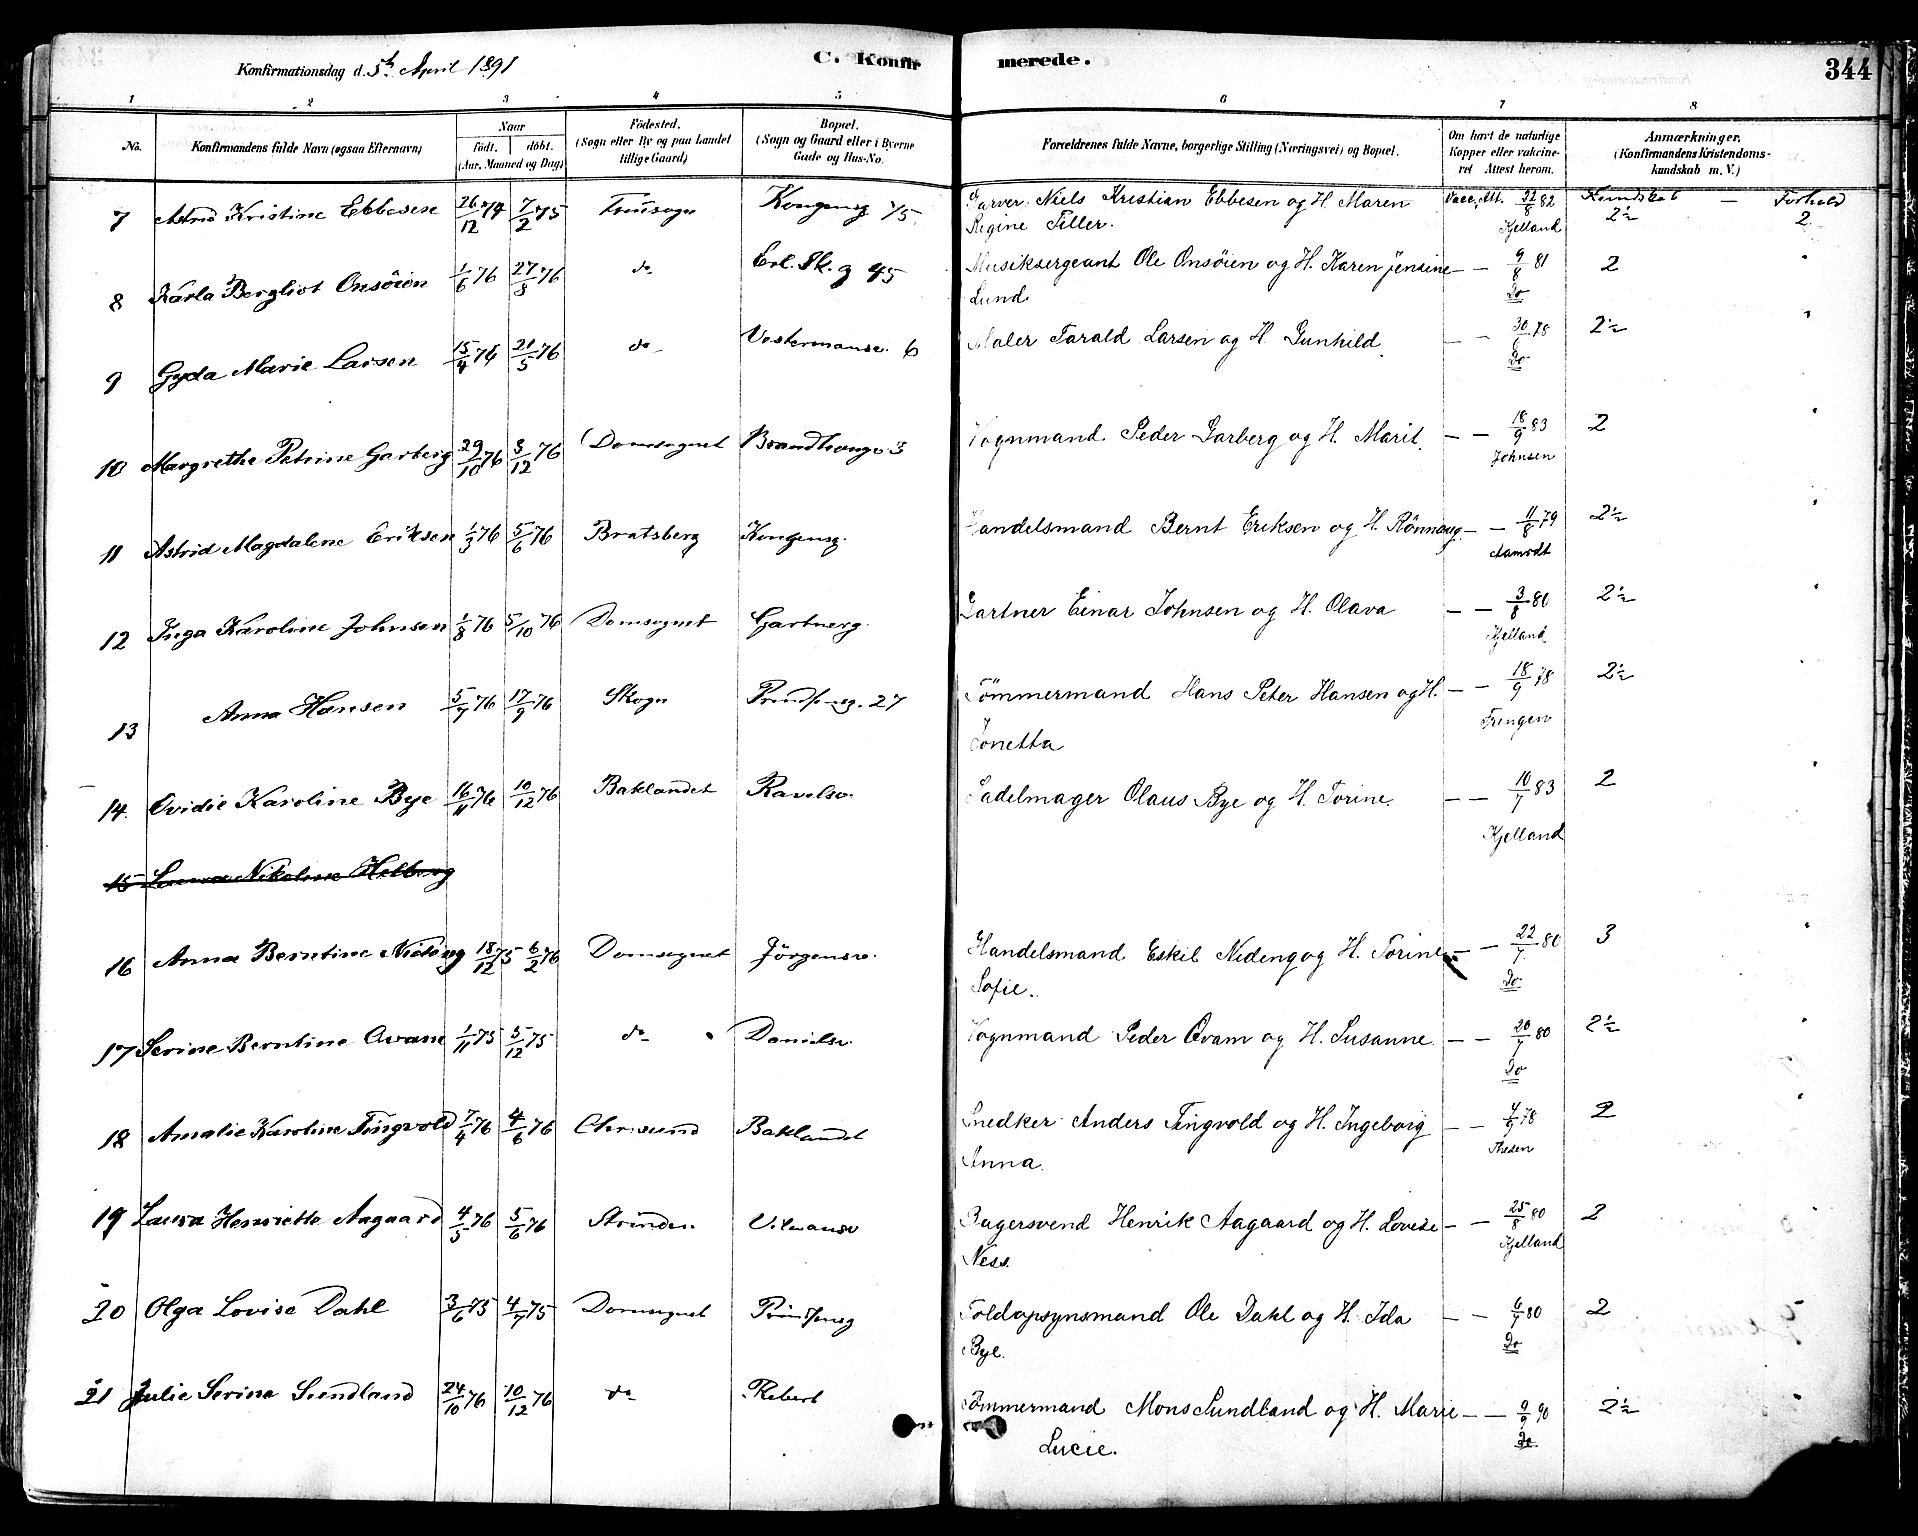 Konfirmationsdag d. 5te April 1891
C. Konfirmerede.
344
1 2 3 4 5 6 7 8
No. Konfirmandens fulde Navn (ogsaa Efternavn) Naar født. døbt. (Aar, Maaned og Dag) Fødested. (Sogn eller By og paa Landet tillige Gaard) Bopæl. (Sogn og Gaard eller i Byerne Gade og Hus-No. Forældrenes fulde Navne, borgerlige Stilling (Næringsvei) og Bopæl. Om havt de naturlige Kopper eller vakcineret Attest herom. Anmærkninger. (Konfirmandens Kristendomskundskab m. V.)
7 Astrid Kristine Ebbesen 26/12 74 7/2 75 Fruesogn Kongensg 75 Garver Niels Kristian Ebbesen og H. Maren Vacc. Att. 22/8 82 Kundskab 2½ — Forhold 2
Regine Tiller. Kjelland
8 Karla Bergliot Onsöien 1/6 76 27/8 76 do Erl. Sk. g 45 Musiksergeant Ole Onsöien og H. Karen Jensine — — 9/8 81 2 "
Lund Do
9 Gyda Marie Larsen 15/4 76 21/5 76 do Vestermansv. 6 Maler Tarald Larsen og H Gunhild — — 30/6 78 2½ "
Do
10 Margrethe Petrine Garberg 29/10 76 3/12 76 Domsognet Brandhauge 3 Vognmand Peder Garberg og H. Marit. — — 18/9 83 2 "
Johnsen
11 Astrid Magdalene Eriksen 1/3 76 5/6 76 Bratsberg Kongensg. Handelsmand Bernt Eriksen og H. Rönnaug — — 11/8 79 2½ "
Aamodt
12 Inga Karoline Johnsen 1/8 76 5/10 76 Domsognet Gartnerg. Gartner Einar Johnsen og H. Olava — — 3/8 80 2½ "
Kjelland
13 Anna Hansen 5/7 76 17/9 76 Skogn Prindsensg. 27 Tömmermand Hans Peter Hansen og H. — — 18/9 78 2½ "
Jonetta Frengen
14. Ovidie Karoline Bye 16/11 76 10/12 76 Baklandet Ravelsv. Sadelmager Olaus Bye og H. Torine. — — 10/7 83 2 "
Kjelland
15 Laura Nikoline Helberg
16 Anna Berntine Nideng 18/12 75 6/2 76 Domsognet Jörgensv. Handelsmand Eskil Nideng og H. Torine — — 22/7 80 3 "
Sofie. Do
17 Serine Berntine Qvam 1/11 75 5/12 75 do Danielsv. Vognmand Peder Qvam og H. Susanne. — — 20/7 80 2½ "
Do
18 Amalie Karoline Tingvold 7/4 76 4/6 76 Chrisund Baklandet Snedker Anders Tingvold og H. Ingeborg — — 4/9 78 2 "
Anna. Thesen
19 Laura Henriette Aagaard 4/5 76 5/6 76 Strinden Bagersvend Henrik Aagaard og H. Lovise — — 25/8 80 2 "
Ness. Kjelland
20 Olga Lovise Dahl 3/6 75 4/7 75 Domsognet Prindsensg Toldopsynsmand Ole Dahl og H. Ida — — 6/7 80 2 "
Bye. Do
21 Julie Serine Sundland 24/10 76 10/12 76 do Tömmermand Mons Sundland og H. Marie — — 9/9 90 2½
Lucie. Do